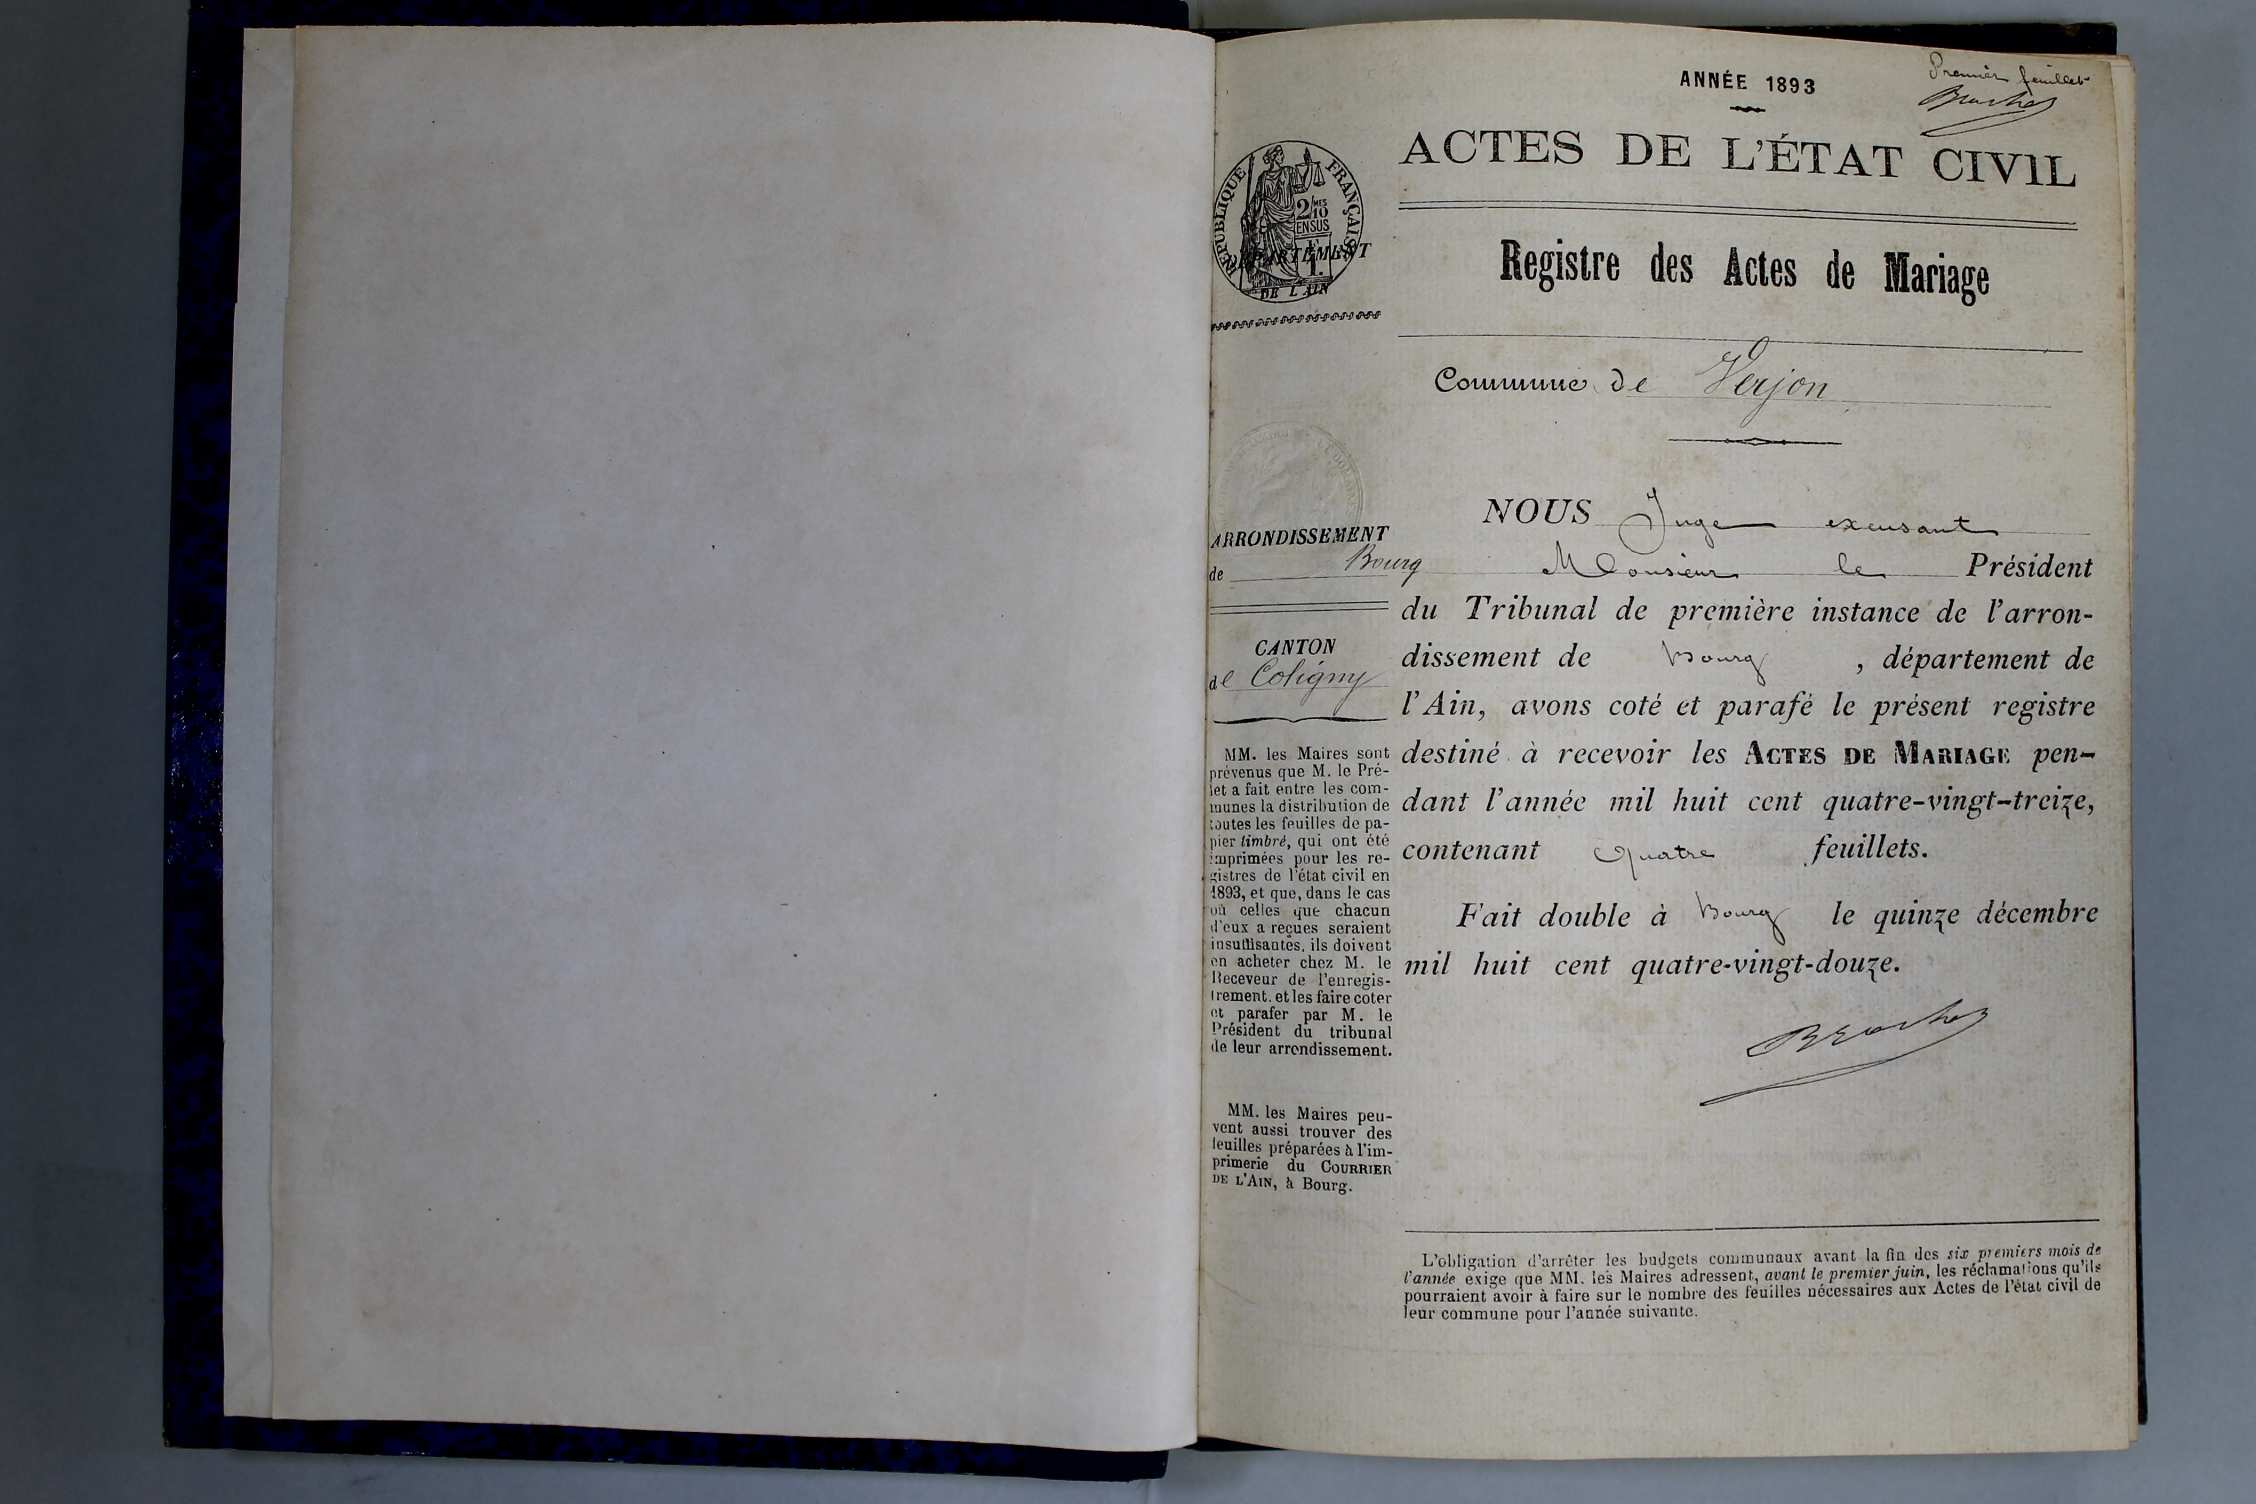 ANNÉE 1893
Premier feuillet
ACTES DE L'ÉTAT CIVIL
RÉPUBLIQUE FRANÇAISE
2/10MES
EN SUS
DÉPARTEMENT
DE L'AIN
Registre des Actes de Mariage
Commune de Verjon
ARRONDISSEMENT
de Bourg
CANTON
de Coligny
MM. les Maires sont
prévenus que M. le Pré-
fet a fait entre les com-
munes la distribution de
toutes les feuilles de pa-
pier timbré, qui ont été
imprimées pour les re-
gistres de l'état civil en
1893, et que, dans le cas
où celles que chacun
d'eux a reçues seraient
insuffisantes, ils doivent
en acheter chez M. le
Receveur de l'enregis-
trement, et les faire coter
et parafer par M. le
Président du tribunal
de leur arrondissement.
MM. les Maires peu-
vent aussi trouver des
feuilles préparées à l'im-
primerie du COURRIER
DE L'AIN, à Bourg.
NOUS Juge excusant
Monsieur le Président
du Tribunal de première instance de l'arron-
dissement de Bourg, département de
l'Ain, avons coté et parafé le présent registre
destiné à recevoir les ACTES DE MARIAGE pen-
dant l'année mil huit cent quatre-vingt-treize,
contenant Quatre feuillets.
Fait double à Bourg le quinze décembre
mil huit cent quatre-vingt-douze.
L'obligation d'arrêter les budgets communaux avant la fin des six premiers mois de
l'année exige que MM. les Maires adressent, avant le premier juin, les réclamations qu'ils
pourraient avoir à faire sur le nombre des feuilles nécessaires aux Actes de l'état civil de
leur commune pour l'année suivante.